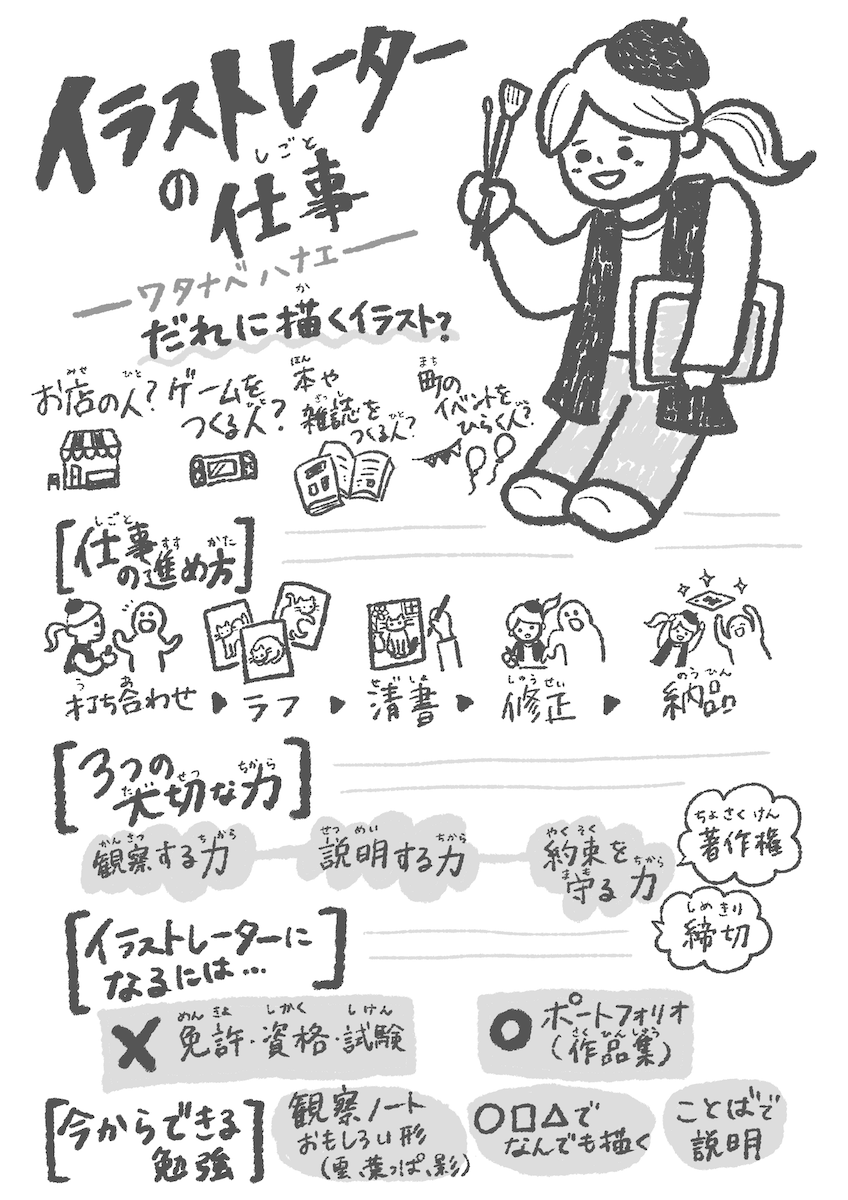 イラストレーター
の仕事
しごと
ワタナベハナエ
だれに描くイラスト?
か
お店の人?
みせ ひと
ゲームを
つくる人?
ひと
本や
ほん
雑誌を
ざっし
つくる人?
ひと
町の
まち
イベントを
ひらく人?
ひと
[仕事
しごと
の進め方]
すす かた
打ち合わせ ▶ ラフ ▶ 清書 ▶ 修正 ▶ 納品
う あ せいしょ しゅうせい のうひん
[3つの
大切な力]
たいせつ ちから
観察する力
かんさつ ちから
説明する力
せつめい ちから
約束を
やくそく
守る力
まも ちから
著作権
ちょさくけん
締切
しめきり
[イラストレーターに
なるには…]
✕ 免許・資格・試験
めんきょ しかく しけん
○ ポートフォリオ
(作品集)
さくひんしゅう
[今からできる
勉強]
観察ノート
おもしろい形
(雲、葉っぱ、影)
○□△で
なんでも描く
ことばで
説明